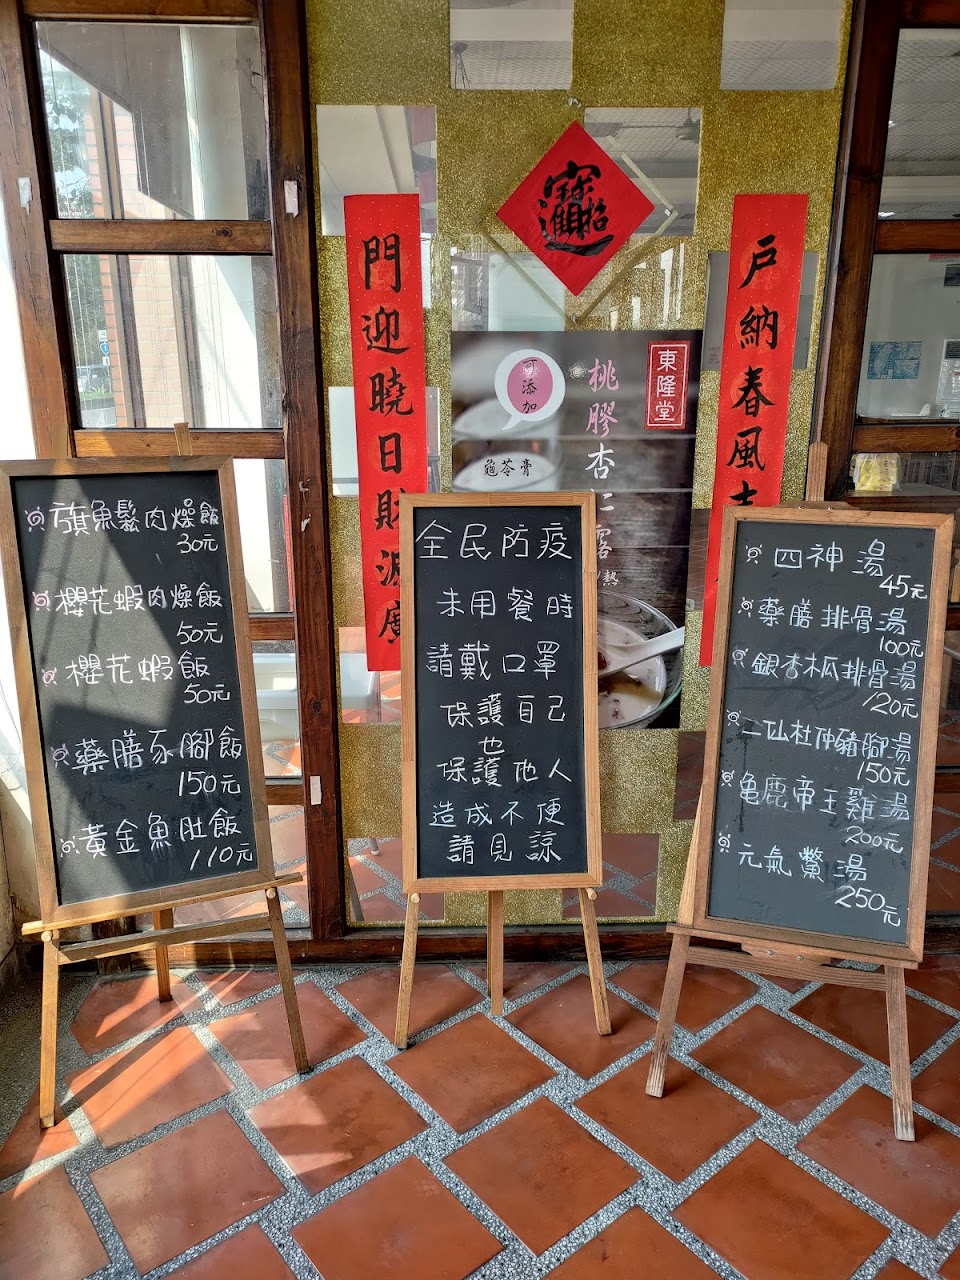 招財進寶
門迎曉日財源廣
戶納春風吉
東隆堂
可添加
桃膠杏仁露
龜苓膏
熱
旗魚鬆肉燥飯
30元
櫻花蝦肉燥飯
50元
櫻花蝦飯
50元
藥膳豕腳飯
150元
黃金魚肚飯
110元
全民防疫
未用餐時
請戴口罩
保護自己
也
保護他人
造成不便
請見諒
四神湯
45元
藥膳排骨湯
100元
銀杏木瓜排骨湯
120元
二仙杜仲豬腳湯
150元
龟鹿帝王雞湯
200元
元氣鱉湯
250元